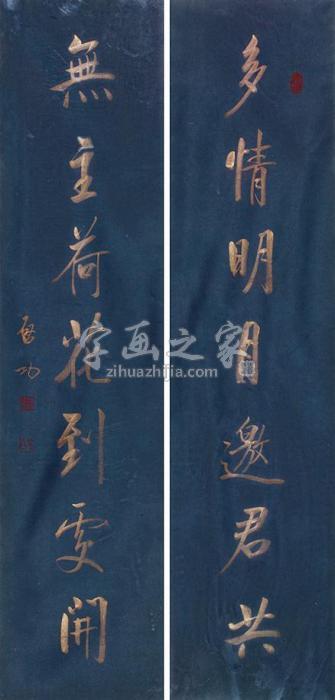 多情明月邀君共
無主荷花到處開
啟功
字画之家
zihuazhijia.com